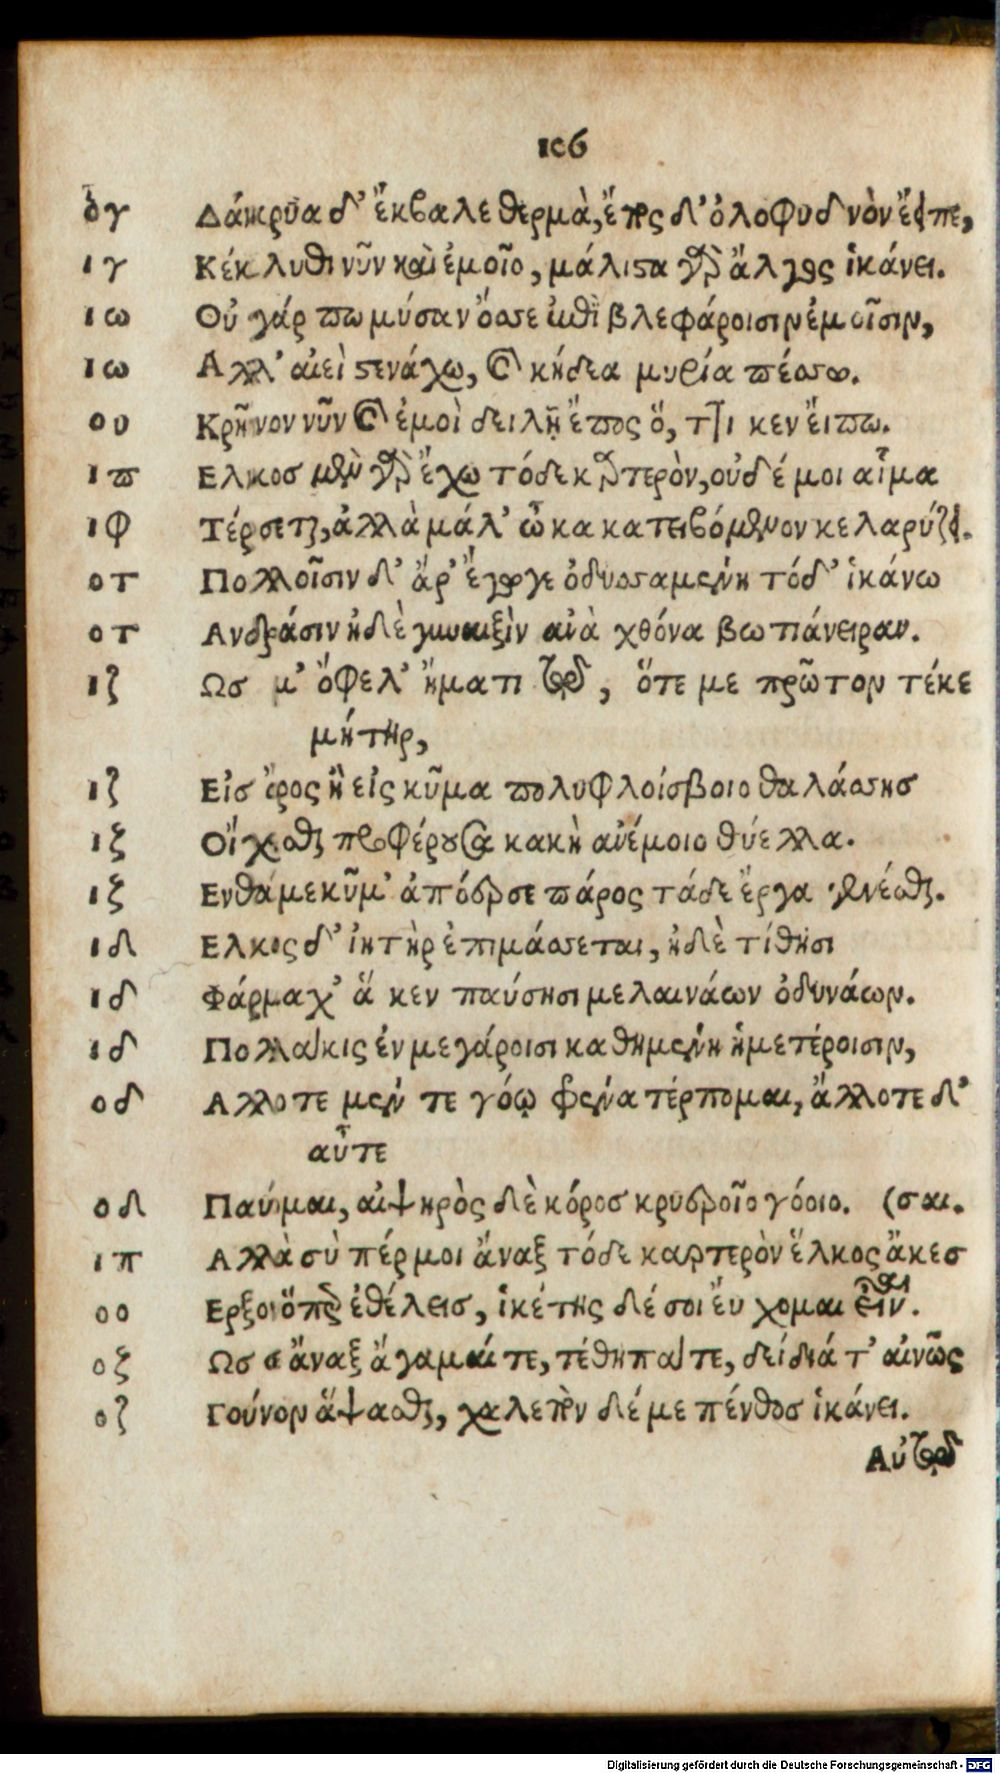 106
ὀγ Δάκρυα δ’ ἔκβαλε θερμὰ, ἔπος δ’ ὀλοφυδνὸν ἔειπε,
ιγ Κέκλυθι νῦν καὶ ἐμοῖο, μάλιστα γὰρ ἄλγος ἱκάνει.
ιω Οὐ γάρ πω μύσαν ὄσσε ὑπὸ βλεφάροισιν ἐμοῖσιν,
ιω Αλλ’ αἰεὶ στενάχω, καὶ κήδεα μυρία πέσσω.
ου Κρῆνον νῦν καὶ ἐμοὶ δειλῇ ἔπος ὅ, ττι κεν εἴπω.
ιπ Ελκοσ μὲν γὰρ ἔχω τόδε καρτερὸν, οὐδέ μοι αἷμα
ιφ Τέρσεται, ἀλλὰ μάλ’ ὦκα κατειβόμενον κελαρύζει.
οτ Πολλοῖσιν δ’ ἄρ’ ἔγωγε ὀδυσσαμένη τόδ’ ἱκάνω
οτ Ανδράσιν ἠδὲ γυναιξὶν ἀνὰ χθόνα βωτιάνειραν.
ιζ Ωσ μ’ ὄφελ’ ἤματι τῷ, ὅτε με πρῶτον τέκε
μήτηρ,
ιζ Εἰσ ὄρος ἢ εἰς κῦμα πολυφλοίσβοιο θαλάσσησ
ιξ Οἴχεσθαι προφέρουσα κακὴ ἀνέμοιο θύελλα.
ιξ Ενθά με κῦμ’ ἀπόερσε πάρος τάδε ἔργα γενέσθαι.
ιδ Ελκος δ’ ἰητὴρ ἐπιμάσσεται, ἠδὲ τίθησι
ιδ Φάρμαχ’ ἅ κεν παύσησι μελαινάων ὀδυνάων.
ιδ Πολλάκις ἐν μεγάροισι καθημένη ἡμετέροισιν,
οδ Αλλοτε μέν τε γόῳ φρένα τέρπομαι, ἄλλοτε δ’
αὖτε
οδ Παύομαι, αἰψηρὸς δὲ κόροσ κρυεροῖο γόοιο. (σαι.
ιπ Αλλὰ σὺ πέρ μοι ἄναξ τόδε καρτερὸν ἕλκος ἄκεσ
οο Ερξον ὅπως ἐθέλεισ, ἱκέτης δέ σοι εὔχομαι εἶναι.
οξ Ωσ σ ἄναξ ἄγαμαί τε, τέθηπά τε, δείδιά τ’ αἰνῶς
οζ Γούνον ἅψασθαι, χαλεπὸν δέ με πένθοσ ἱκάνει.
Αὐτὰρ
Digitalisierung gefördert durch die Deutsche Forschungsgemeinschaft - DFG